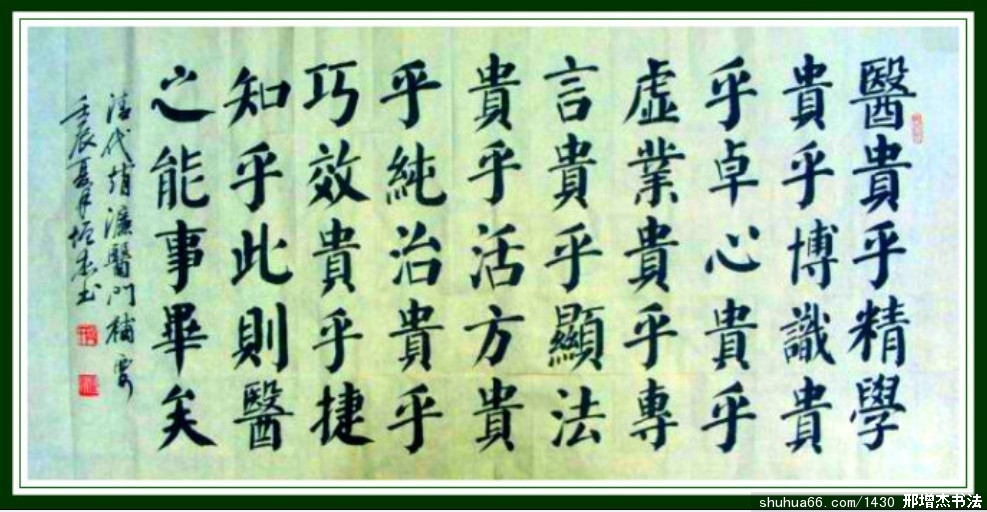 醫貴乎精學
貴乎博識貴
乎卓心貴乎
虛業貴乎專
言貴乎顯法
貴乎活方貴
乎純治貴乎
巧效貴乎捷
知乎此則醫
之能事畢矣
清代趙濂醫門補要
壬辰夏月增杰书
shuhua66.com/1430 邢增杰书法